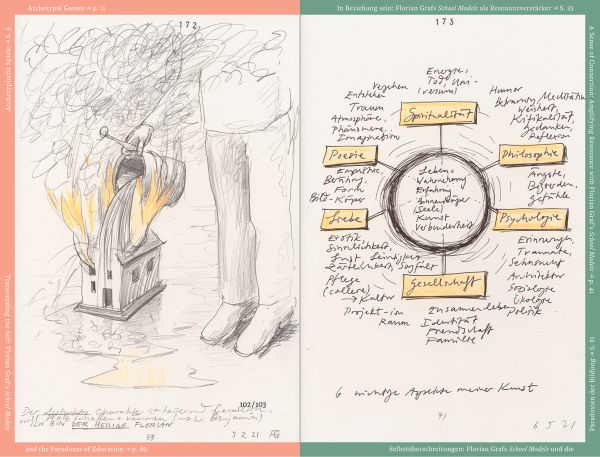 Archetypal Games → p. 11
172
102/103
ICH BIN DER HEILIGE FLORIAN
33
5 2 21 FG
and the Paradoxes of Education → p. 89
Transcending the Self: Florian Graf's School Models
In Beziehung sein: Florian Grafs School Models als Resonanzverstärker → S. 33
173
Energie,
Tod, Uni-
versum
Vergehen
Entstehen
Traum
Atmosphäre,
Phänomene,
Imagination
Spiritualität
Humor
Meditation
Weisheit,
Kritikalität,
Gedanken,
Reflexion
Poesie
Philosophie
Empathie,
Form
Bild-Körper
Leben
Wahrnehmung
Erfahrung
(Seele)
Kunst
Verbundenheit
Ängste,
Gefühle
Liebe
Psychologie
Erotik,
Sinnlichkeit,
Zärtlichkeit, Sorgfalt
Pflege
→ Kultur
Erinnerungen,
Traumata,
Sehnsucht
Gesellschaft
Architektur
Soziologie
Ökologie
Politik
Projekt-ion
Raum
Zusammenleben
Identität
Freundschaft
Familie
6 wichtige Aspekte meiner Kunst
71
6 5 21
A Sense of Connection: Amplifying Resonance with Florian Graf's School Models → p. 41
Paradoxien der Bildung → S. 91
Selbstüberschreitungen: Florian Grafs School Models und die